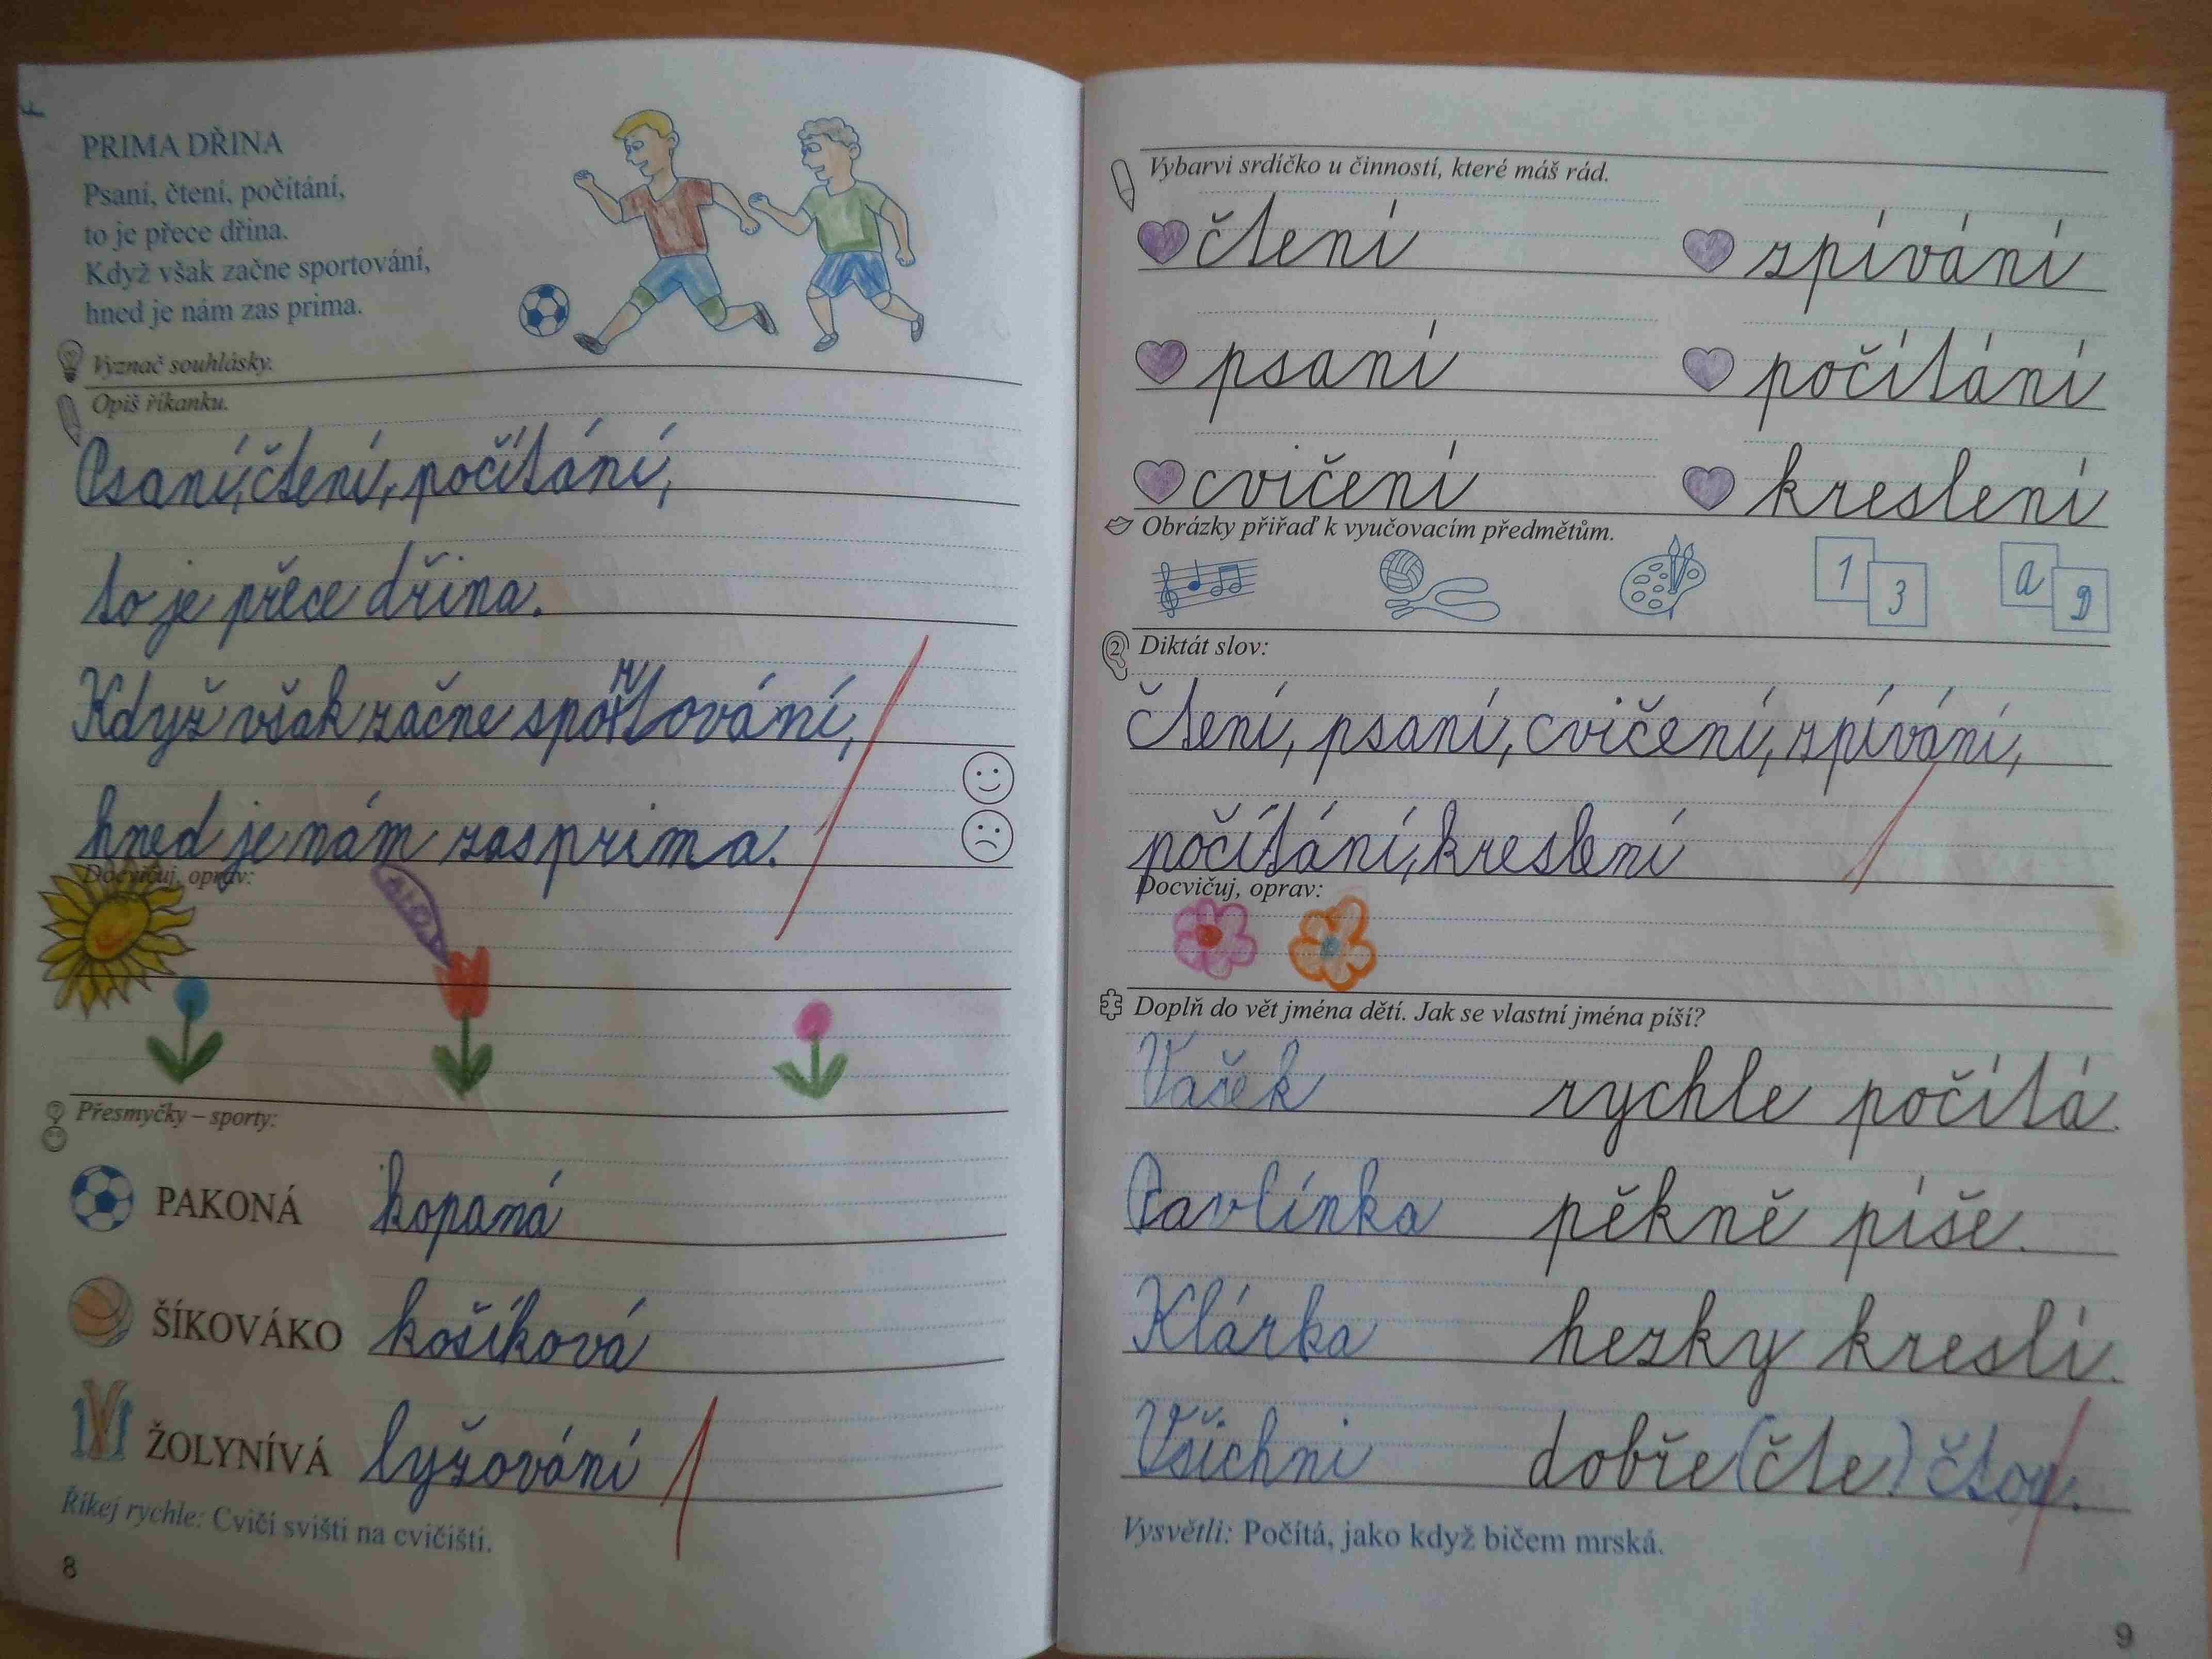 PRIMA DŘINA
Psaní, čtení, počítání,
to je přece dřina.
Když však začne sportování,
hned je nám zas prima.
Vyznač souhlásky.
Opiš říkanku.
Psaní, čtení, počítání,
to je přece dřina.
Když však začne sportování,
hned je nám zas prima.
Docvičuj, oprav:
Přesmyčky – sporty:
PAKONÁ kopaná
ŠÍKOVÁKO košíková
ŽOLYNÍVÁ lyžování 1
Říkej rychle: Cvičí svišti na cvičišti.
8
Vybarvi srdíčko u činností, které máš rád.
čtení zpívání
psaní počítání
cvičení kreslení
Obrázky přiřaď k vyučovacím předmětům.
1 3 a
2 Diktát slov:
Čtení, psaní, cvičení, zpívání,
počítání, kreslení 1
Docvičuj, oprav:
Doplň do vět jména dětí. Jak se vlastní jména píší?
Vašek rychle počítá.
Pavlínka pěkně píše.
Klárka hezky kreslí.
Všichni dobře (čte) čtou.
Vysvětli: Počítá, jako když bičem mrská.
9